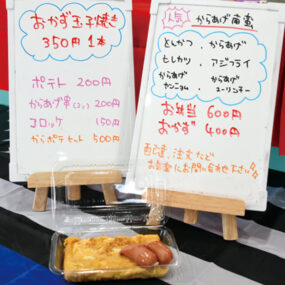 おかず玉子焼き
350円 1本
ポテト 200円
からあげ串(3コ) 200円
コロッケ 150円
からポテセット 500円
人気 からあげ
とんかつ、からあげ
ヒレカツ、アジフライ
からあげ からあげ
ヤンニョム ユーリンチー
お弁当 600円
おかず 400円
配達、注文など
お気軽にお問い合わせ下さい